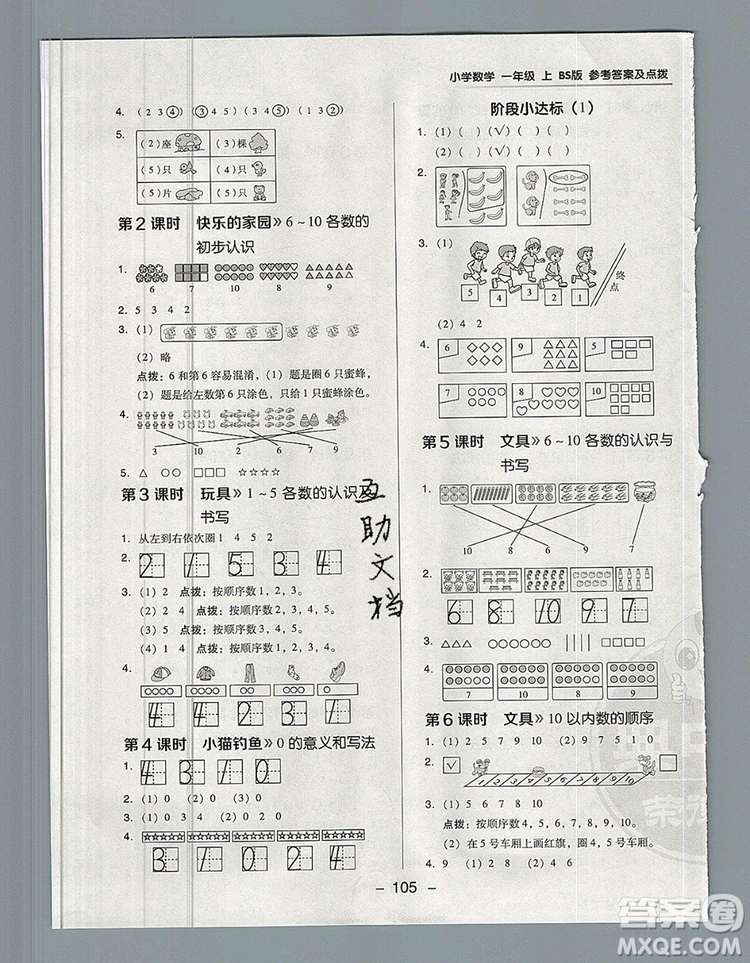 小学数学 一年级 上 BS版 参考答案及点拨
4. (2 3 ④) (1 2 3 ④ ⑤)
5. (2)座 (3)棵
(5)只 (4)只
(5)片 (5)只
第2课时 快乐的家园》6~10各数的
初步认识
1.
6 7 10 8 9
2. 5 3 4 2
3. (1)
(2) 略
点拨：6和第6容易混淆，(1) 题是圈6只蜜蜂，
(2) 题是给左数第6只涂色，只给1只蜜蜂涂色。
4.
3 10 2 9 6
5. △ ○○ □□□ ☆☆☆☆
第3课时 玩具》1~5各数的认识及
书写
1. 从左到右依次圈 1 4 5 2
2. 2 1 5 3 4
3. (1) 2 点拨：按顺序数1, 2, 3。
(2) 2 4 点拨：按顺序数2, 3, 4, 5。
(3) 5 点拨：按顺序数3, 4, 5。
(4) 1 2 点拨：按顺序数1, 2, 3, 4。
4.
4 4 2 3 1
第4课时 小猫钓鱼》0的意义和写法
1. 4 3 1 0
2. (1) 0 (2) 0 (3) 0
3. (1) 0 3 4 (2) 0 2 0
4.
3 1 0 2 4
阶段小达标（1）
1. (1) ( ) (√) ( ) ( )
(2) ( ) ( ) (√) ( )
2.
3. (1)
5 4 3 2 1
终点
(2) 4 2
4. 6 9 5
7 8 10
第5课时 文具》6~10各数的认识与
书写
1.
10 8 6 9 7
2.
6 8 10 9 7
3. △△△ ○○○○○○ □□□□□
4.
7 10 9 8
第6课时 文具》10以内数的顺序
1. (1) 2 5 7 8 9 10 (2) 9 7 5 1 0
2. √
0 1 2 3 4 5 6 7 8 9 10
3. (1) 5 6 7 8 10
点拨：按顺序数4, 5, 6, 7, 8, 9, 10。
(2) 在5号车厢上画红旗，圈4, 5, 6号车厢。
4. 9 8
- 105 -
互
助
文
档
答案圈
MXQE.COM